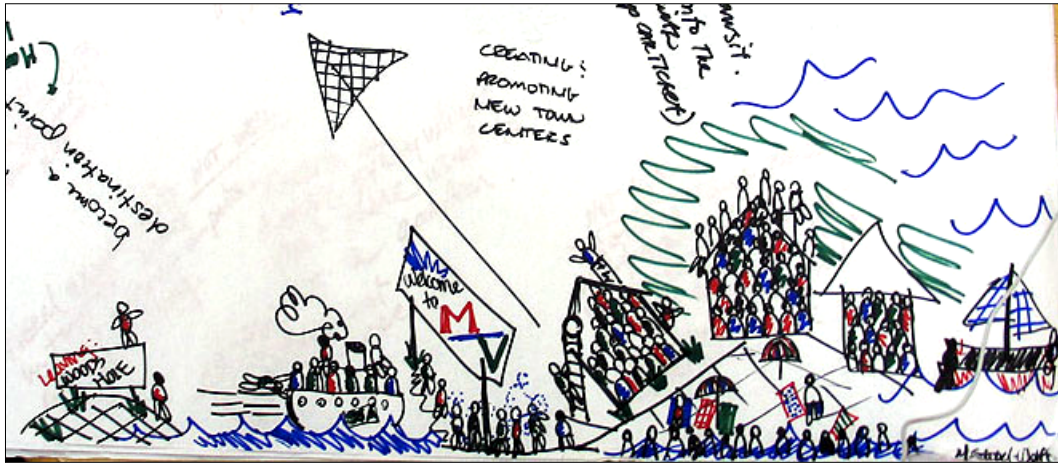 become a
destination point
CREATING &
PROMOTING
NEW TOWN
CENTERS
into the
CAR TICKET)
Welcome
to
M
V
LEAVING:
WOODS
HOLE